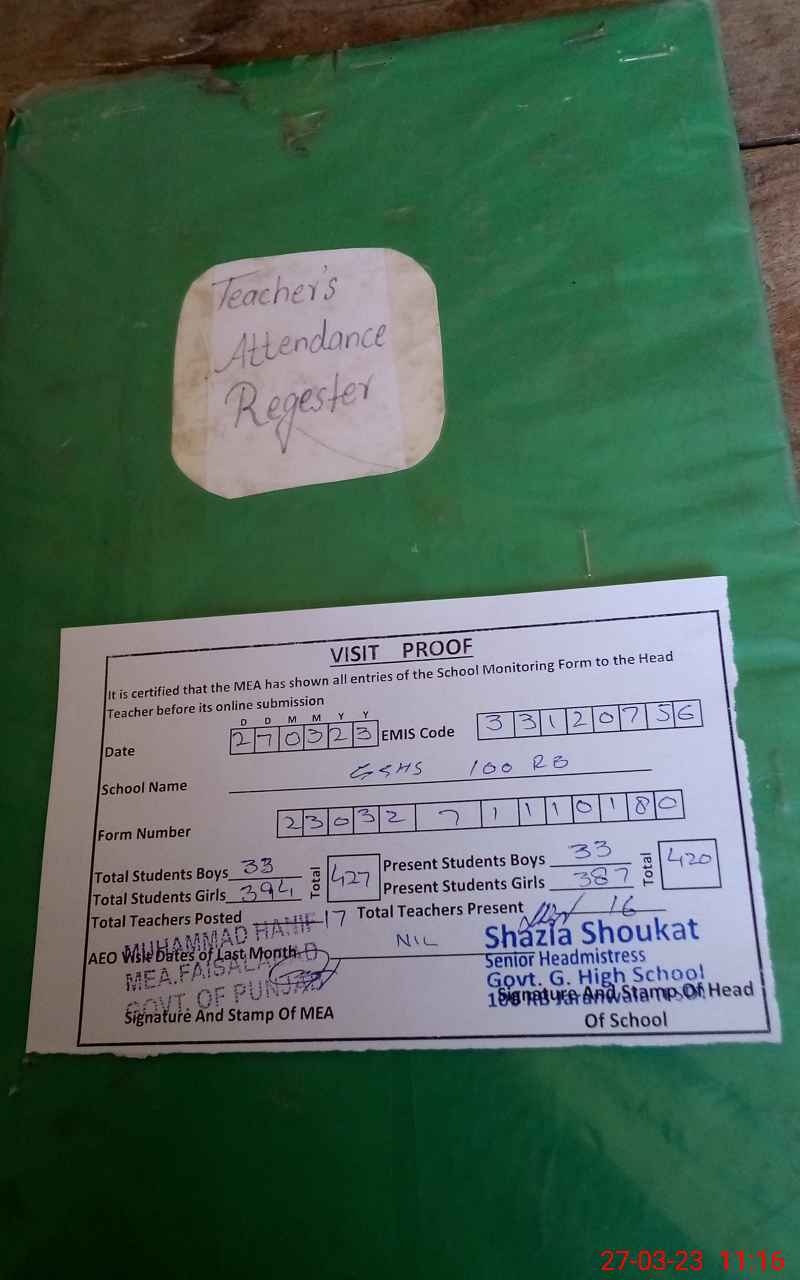 Teacher's
Attendance
Regester
VISIT PROOF
It is certified that the MEA has shown all entries of the School Monitoring Form to the Head
Teacher before its online submission
D D M M Y Y
Date 2 7 0 3 2 3 EMIS Code 3 3 1 2 0 7 5 6
School Name GGHS 100 RB
Form Number 2 3 0 3 2 7 1 1 1 0 1 8 0
Total Students Boys 33 Total 427 Present Students Boys 33 Total 420
Total Students Girls 394 Present Students Girls 387
Total Teachers Posted 17 Total Teachers Present 16
AEO Visit Dates of Last Month NIL
MUHAMMAD HANIF
MEA.FAISALABAD
GOVT. OF PUNJAB
Signature And Stamp Of MEA
Shazia Shoukat
Senior Headmistress
Govt. G. High School
100 RB Jaranwala
Signature And Stamp Of Head
Of School
27-03-23 11:16